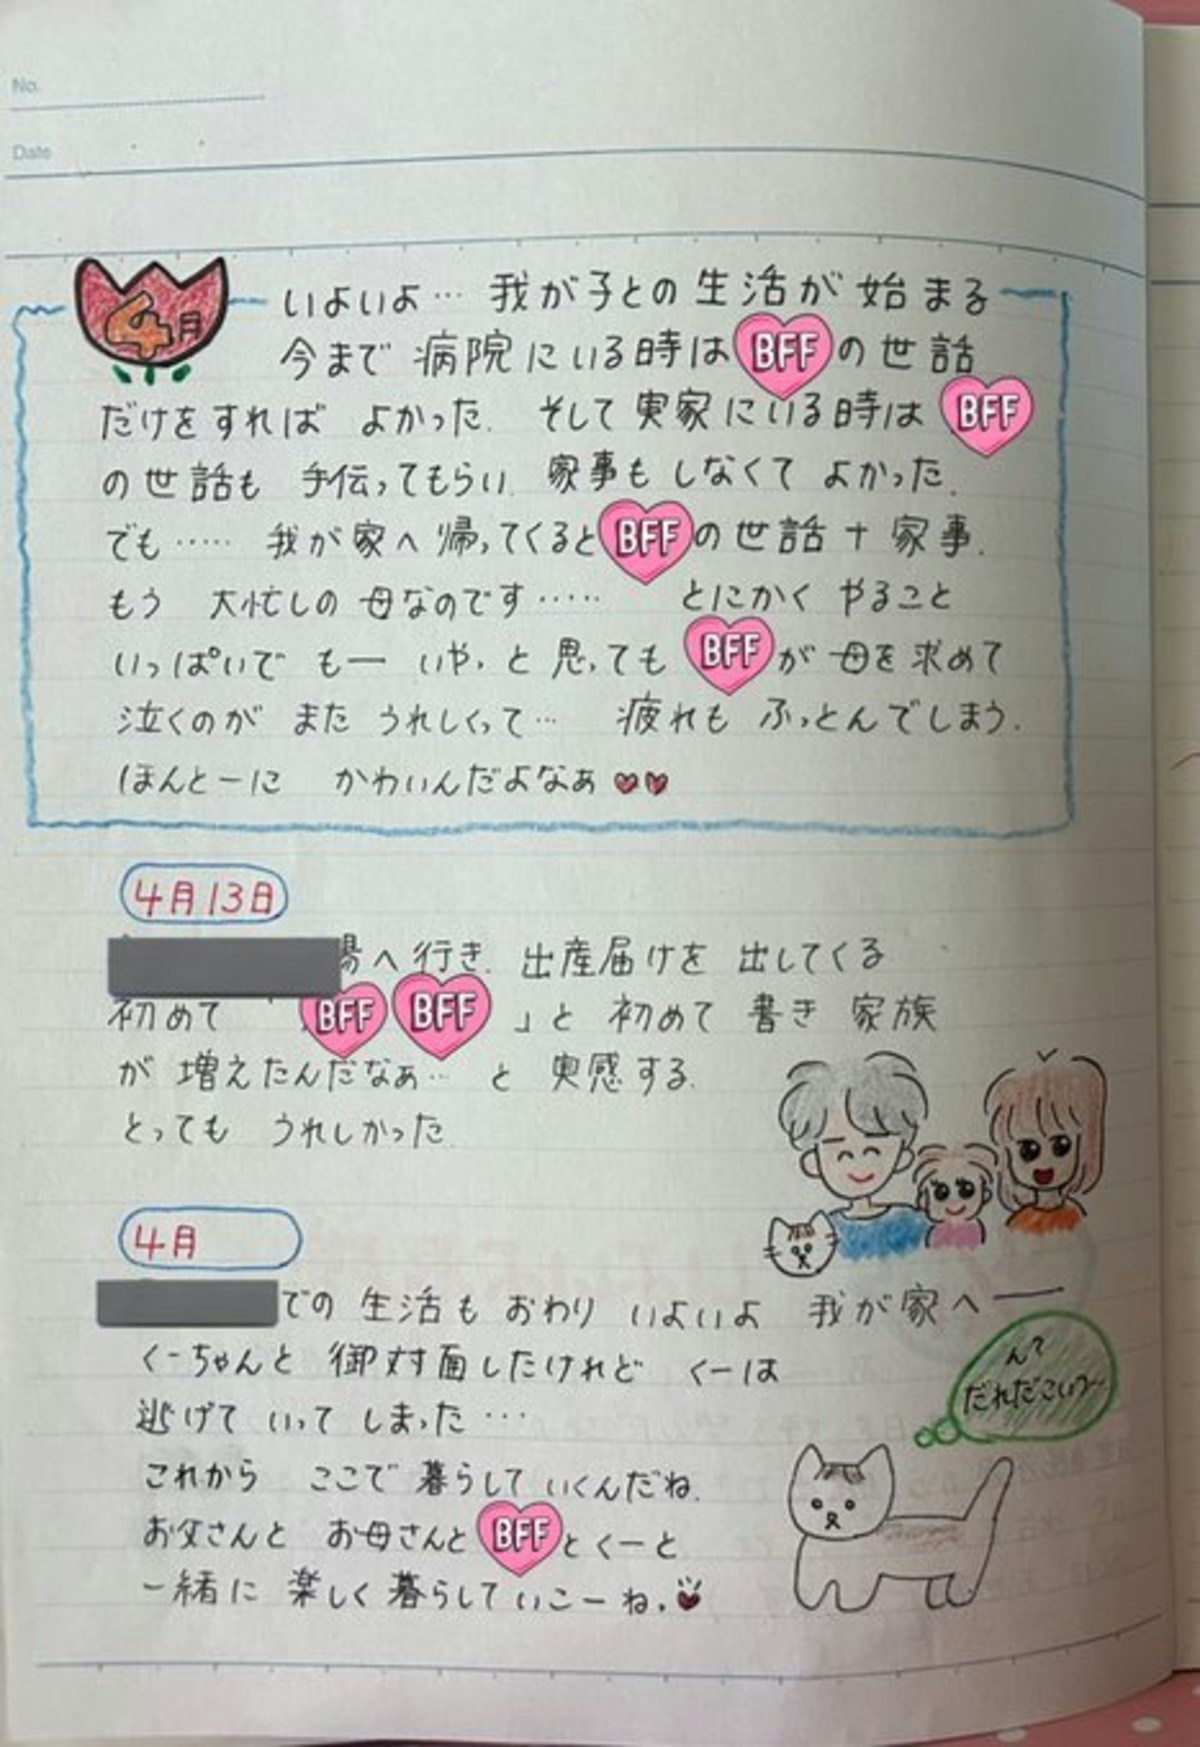 No.
Date
4月
いよいよ… 我が子との生活が始まる
今まで病院にいる時はBFFの世話
だけをすれば よかった. そして実家にいる時はBFF
の世話も 手伝ってもらい. 家事も しなくて よかった.
でも…… 我が家へ帰ってくるとBFFの世話+家事.
もう 大忙しの母なのです…… とにかく やること
いっぱいで もー いやっと思っても BFFが母を求めて
泣くのが また うれしくって… 疲れも ふっとんでしまう.
ほんとーに かわいんだよなぁ
4月13日
場へ行き. 出産届けを 出してくる
初めて 「BFF BFF」と 初めて 書き 家族
が 増えたんだなぁ… と 実感する.
とっても うれしかった.
4月
での 生活も おわり いよいよ 我が家へー
くーちゃんと 御対面したけれど くーは
逃げて いって しまった…
んて
だれだこいつ〜
これから ここで 暮らして いくんだね.
お父さんと お母さんと BFFと くーと
一緒に 楽しく 暮らして いこーね.